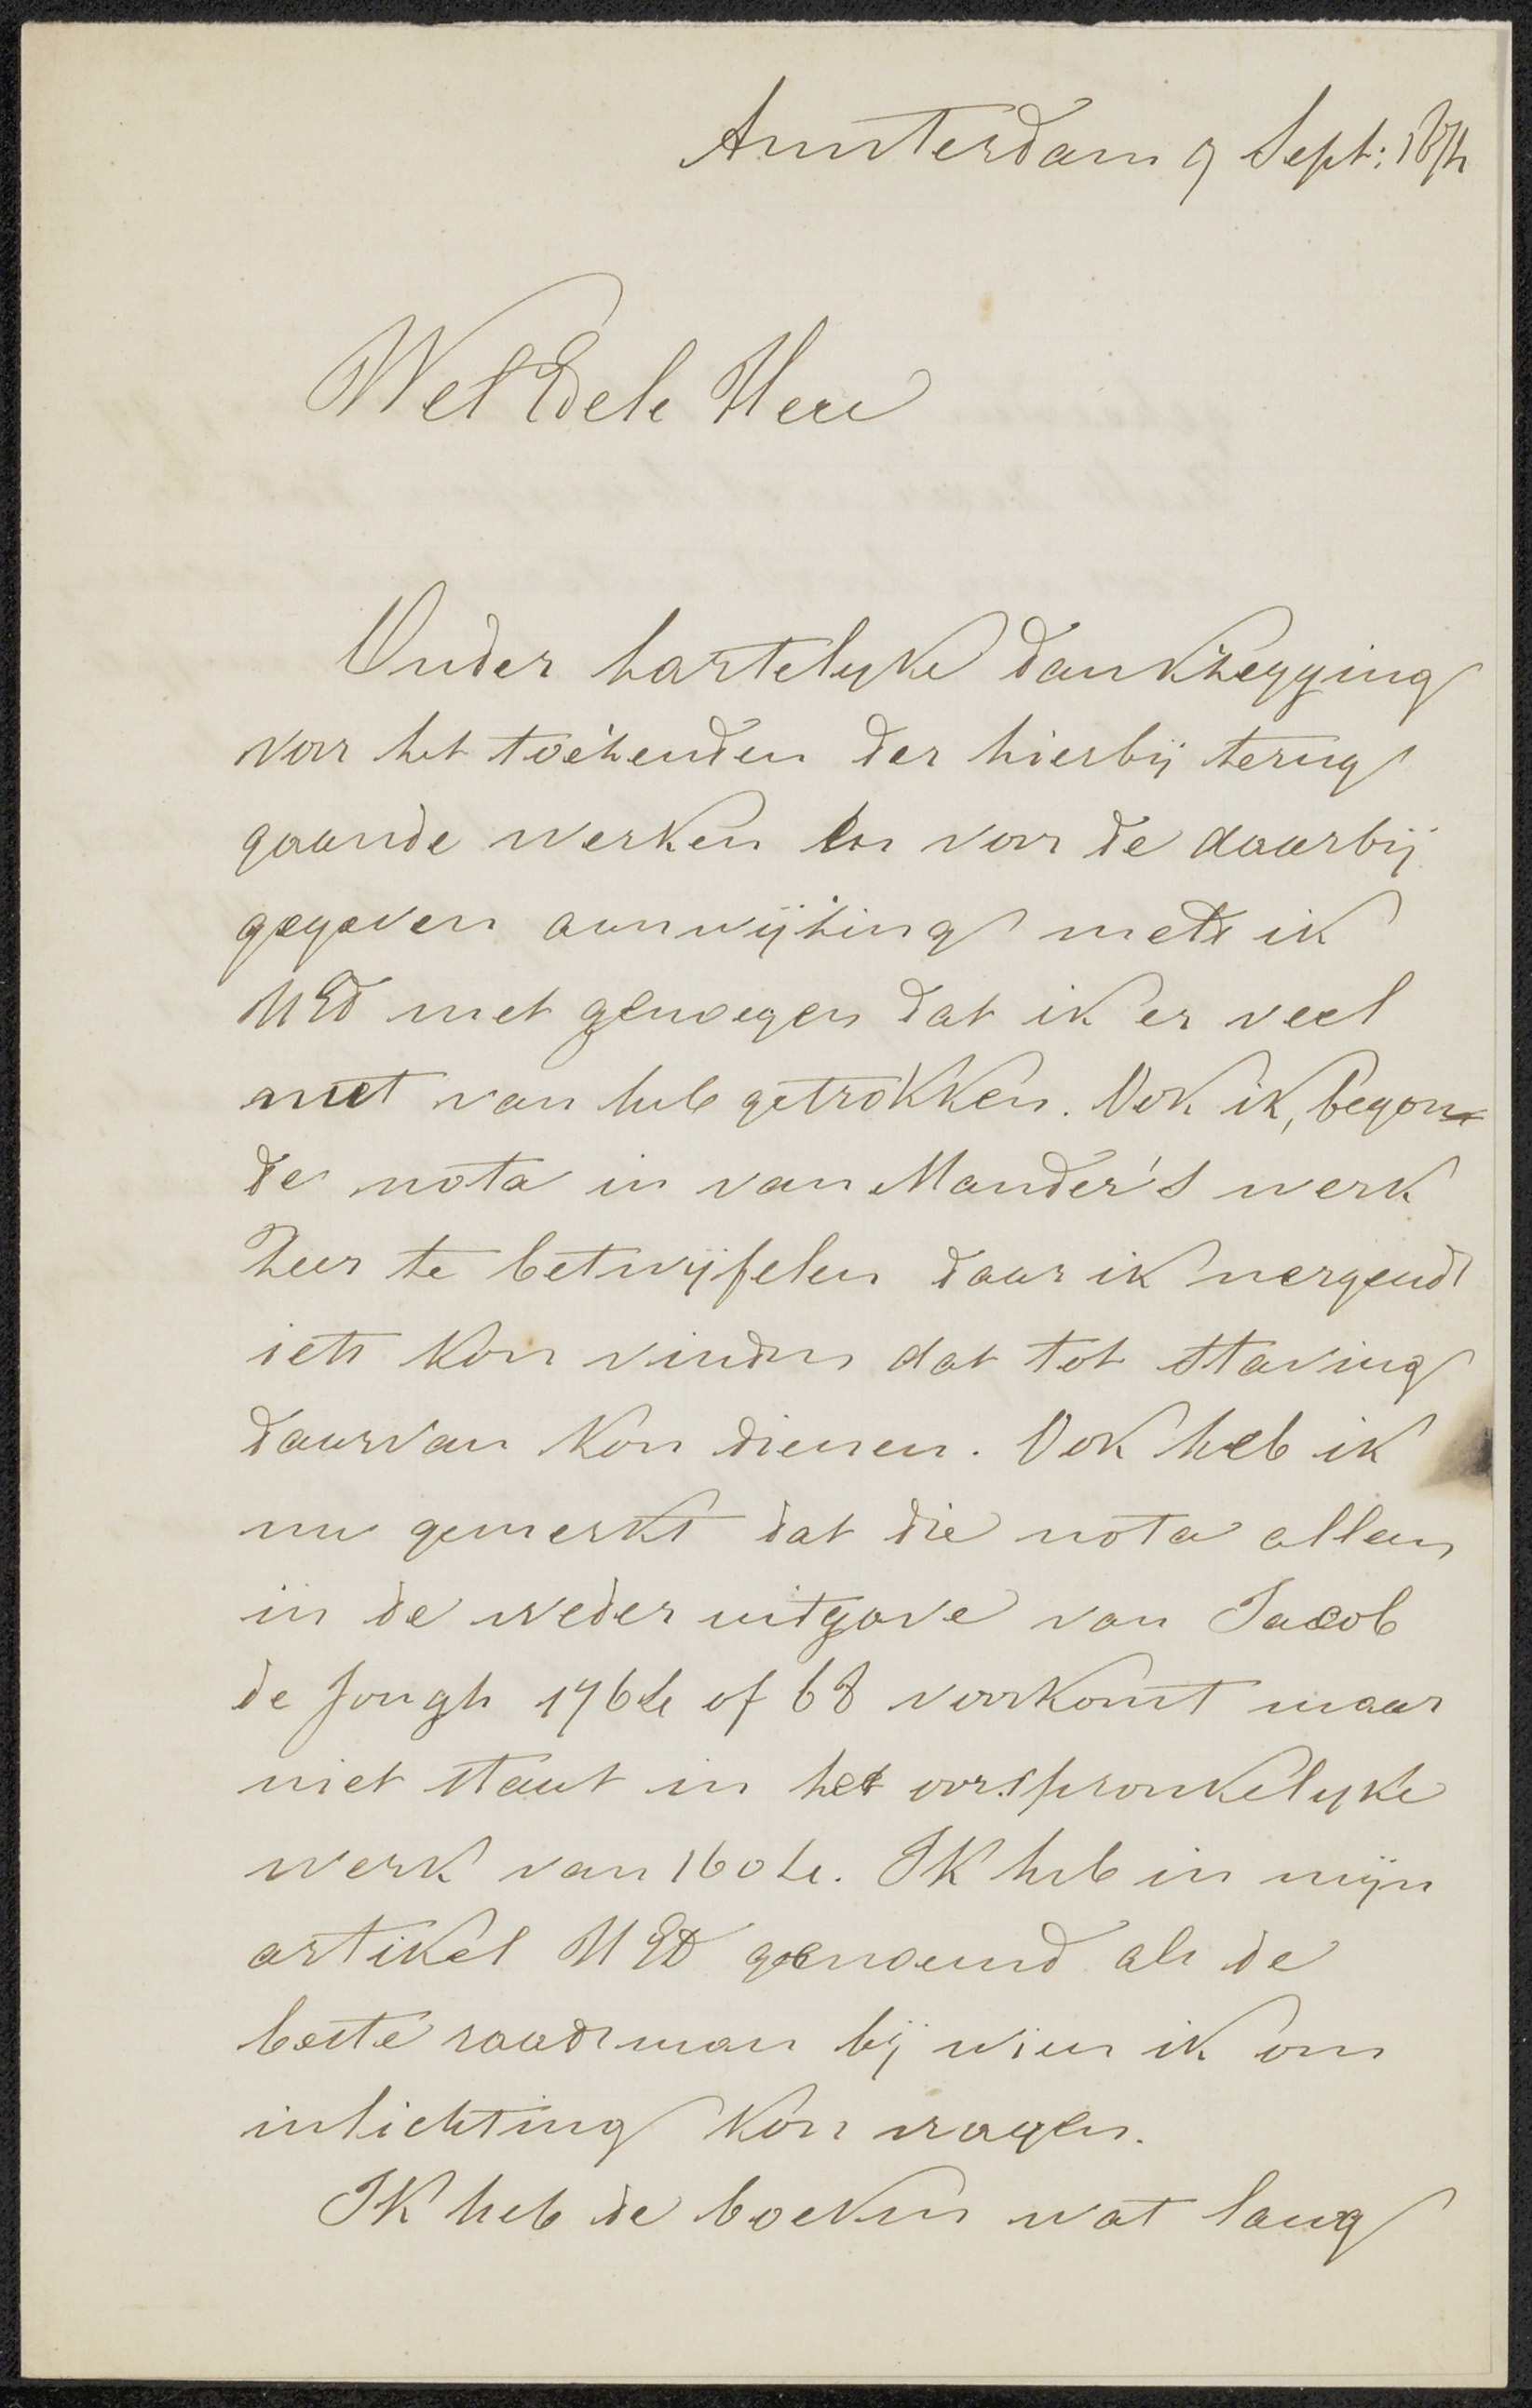 Amsterdam 9 Sept: 187
Wel Edele Heer
Onder hartelyke dankzegging
voor het toezenden der hierbij terug
gaande werken en voor de daarbij
gegeven aanwijzing meld ik
UEd met genoegen dat ik er veel
nut van heb getrokken. Ook ik, begon
de nota in van Mander's werk
zeer te betwijfelen daar ik nergends
iets kon vinden dat tot staving
daarvan kon dienen. Ook heb ik
nu gemerkt dat die nota alleen
in de weder uitgave van Jacob
de Jongh 1764 of 68 voorkomt maar
niet staat in het oorspronkelyke
werk van 1604. Ik heb in mijn
artikel UEd genoemd als de
beste raadsman bij wien ik om
inlichting kon vragen.
Ik heb de boeken wat lang